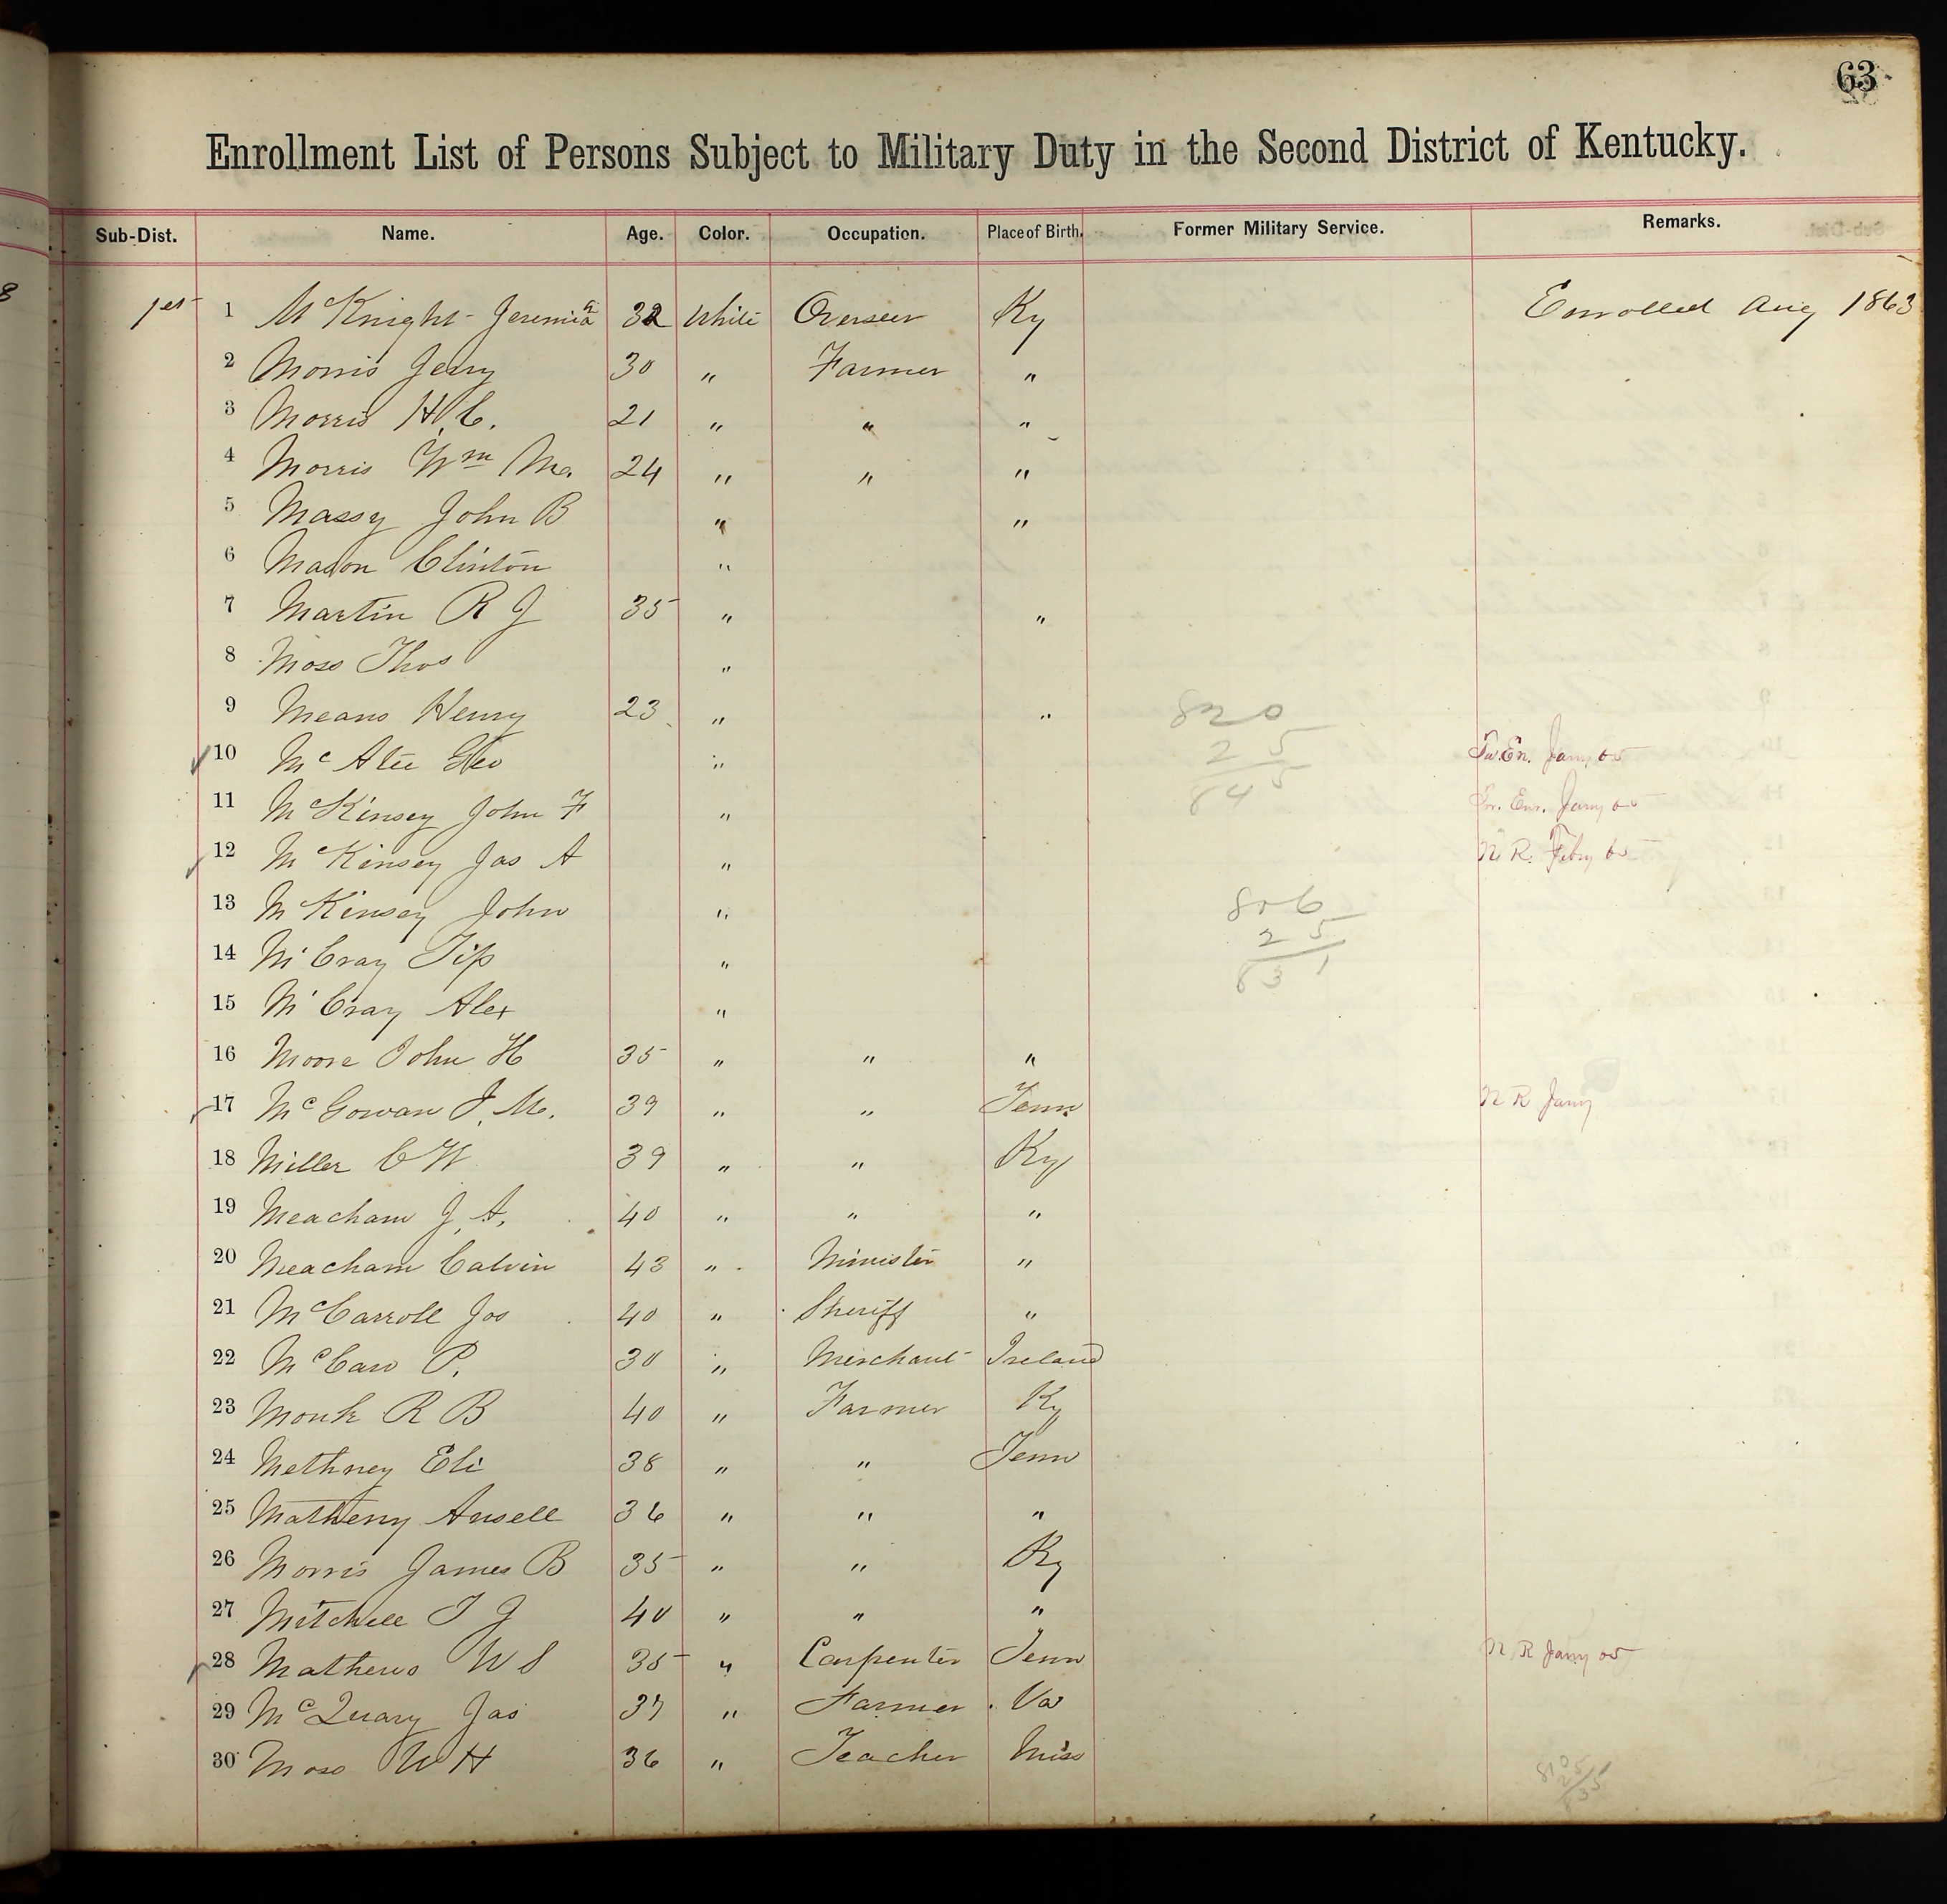 63
Enrollment List of Persons Subject to Military Duty in the Second District of Kentucky.
Sub-Dist. Name. Age. Color. Occupation. Place of Birth. Former Military Service. Remarks.
1st 1 McKnight Jeremia 32 White Overseer Ky Enrolled Aug 1863
2 Morris Jerry 30 " Farmer "
3 Morris H. C. 21 " " "
4 Morris Wm Mc. 24 " " "
5 Massy John B " "
6 Mason Clinton "
7 Martin R J 35 " "
8 Moss Thos "
9 Means Henry 23 " " 820
25
845
10 McAtee Geo " En. Jany 65
11 McKinsey John F " Enr. Jany 65
12 McKinsey Jas A " N R. Feby 65
13 McKinsey John " 806
25
831
14 McCray Tip "
15 McCray Alex "
16 Moore John H 35 " " "
17 McGowan J. M. 39 " " Tenn N R Jany
18 Miller C W 39 " " Ky
19 Meacham J. A. 40 " " "
20 Meacham Calvin 43 " Minister "
21 McCarroll Jos 40 " Sheriff "
22 McCaw P. 30 " Merchant Ireland
23 Monk R B 40 " Farmer Ky
24 Methney Eli 38 " " Tenn
25 Matheny Ansell 36 " " "
26 Morris James B 35 " " Ky
27 Mitchell T J 40 " " "
28 Mathews W S 35 " Carpenter Tenn N R Jany 65
29 McQuary Jas 37 " Farmer Va
30 Moss W H 36 " Teacher Miss
810
25
835